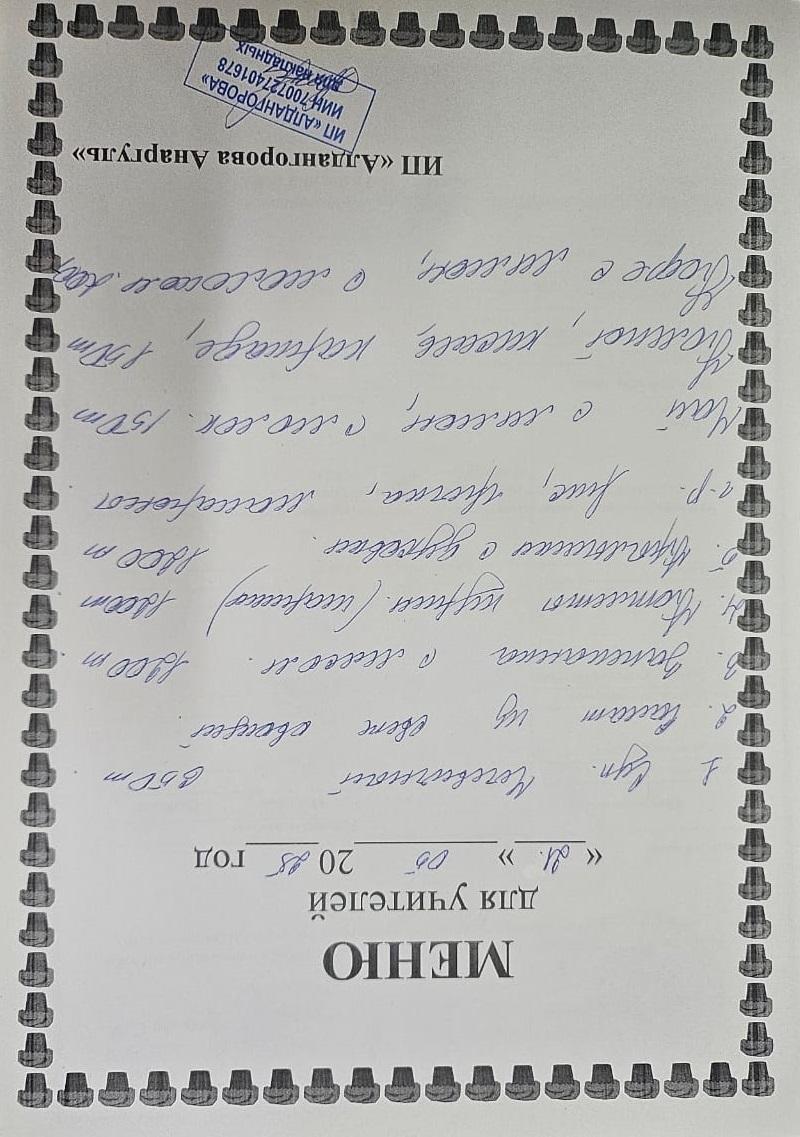 МЕНЮ
для учителей
« 21. » 05 20 25 год
1 Суп. Чечевичный 850т
2. Салат из свеж овощей
3. Запеканка с мясом. 1200т
4. Котлеты курин. (паришка) 1200т
5. с духовки. 1200т
г-р. рис, гречка, макароны
Чай с лимон, с молок. 150т
кисель, каркаде, 150т
Кофе с лимон, с молоком.
ИП «Алдангорова Анаргуль»
ИП «АЛДАНГОРОВА»
ИИН 700727401678
для накладных